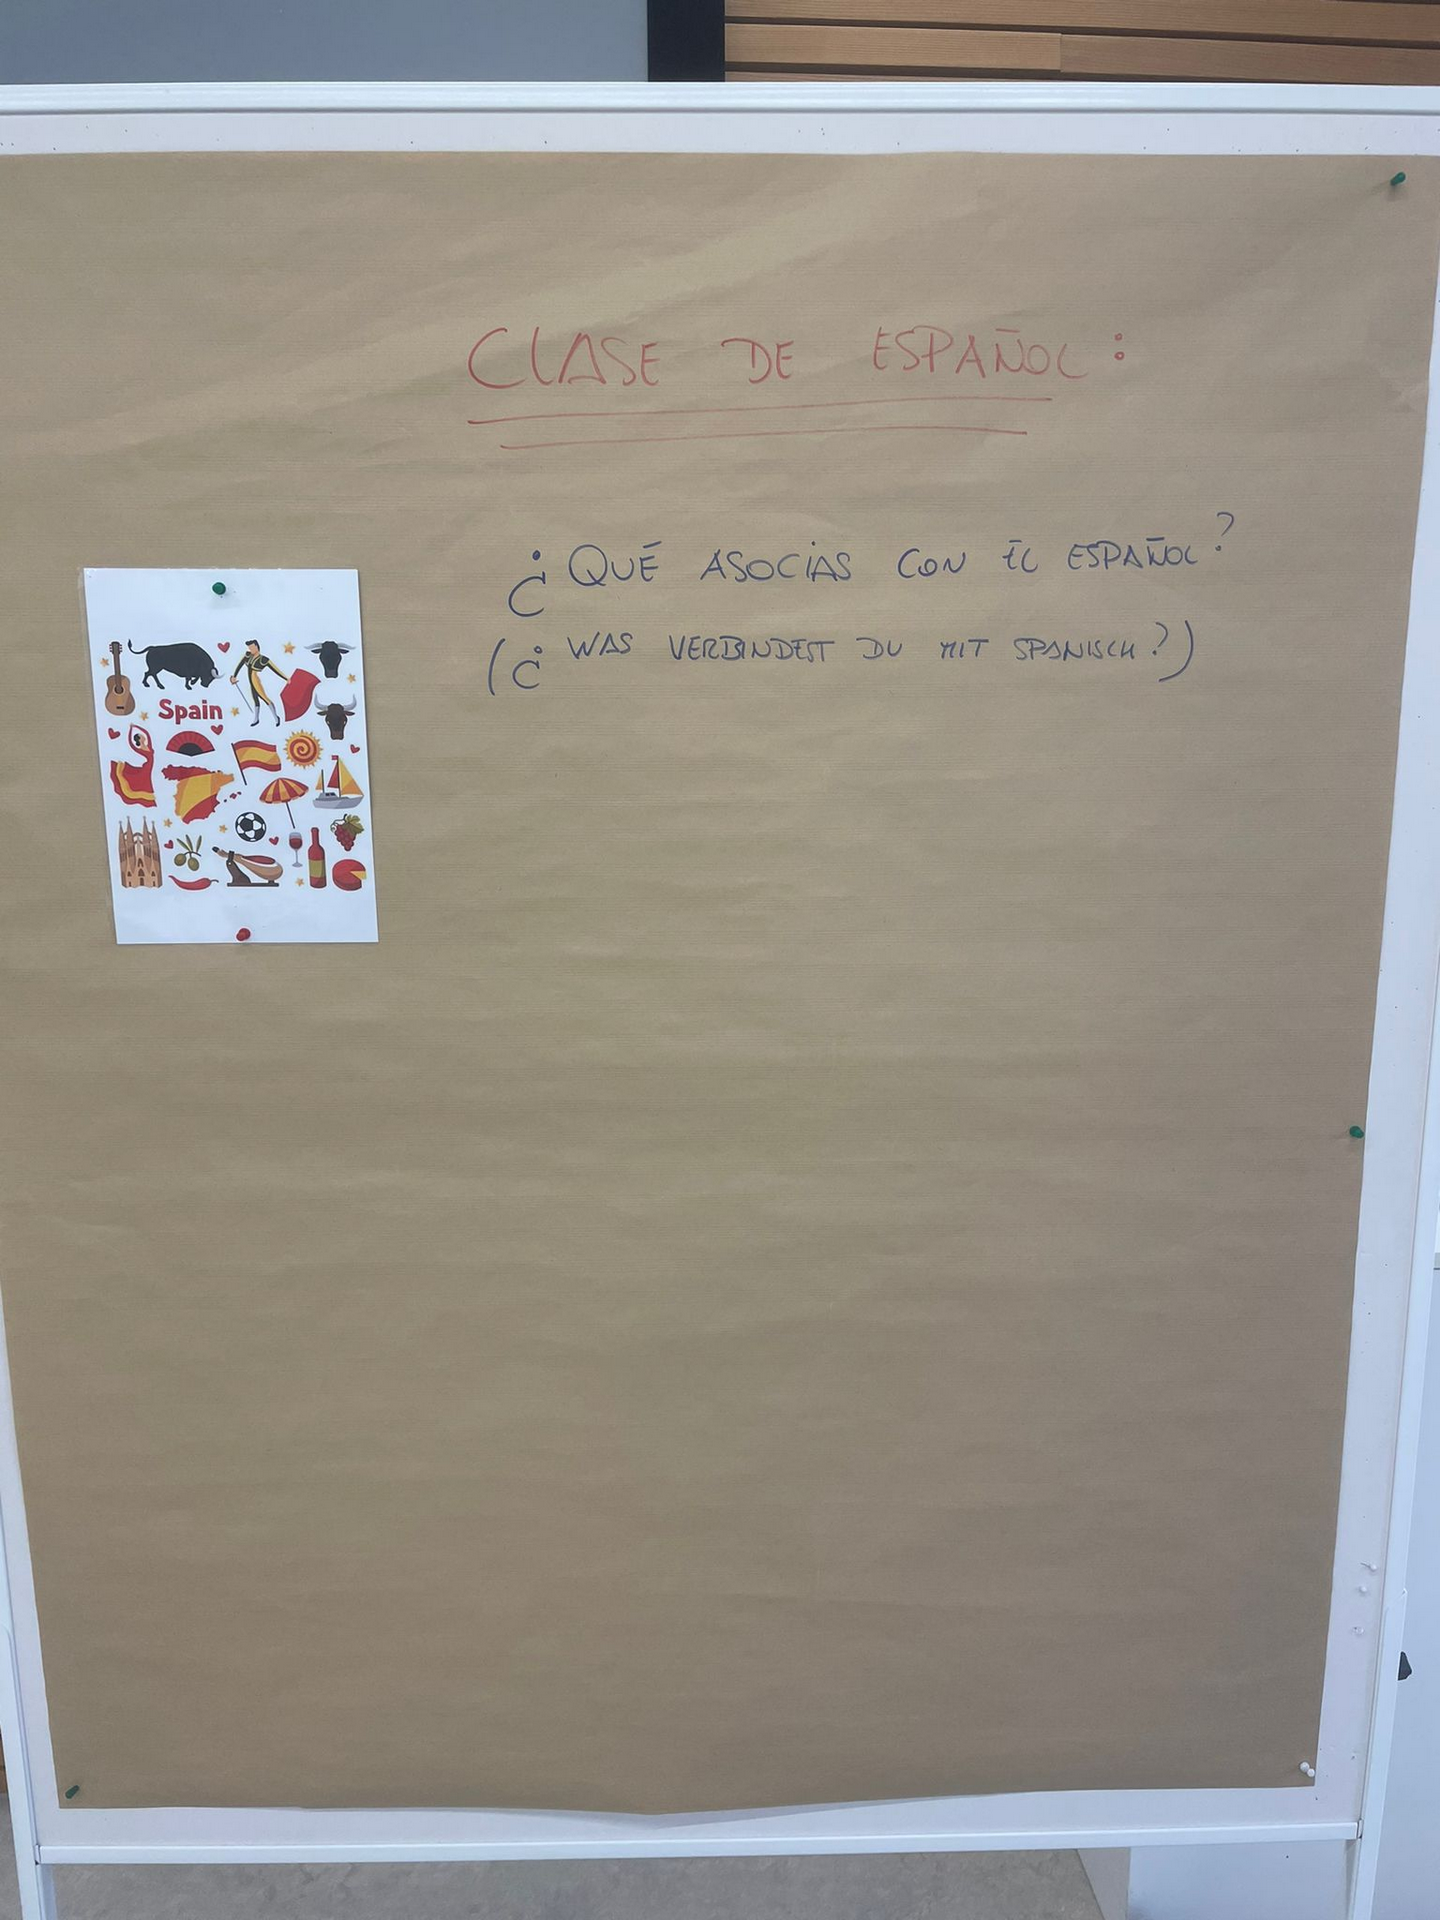 CLASE DE ESPAÑOL:
¿QUÉ ASOCIAS CON EL ESPAÑOL?
(¿WAS VERBINDEST DU MIT SPANISCH?)
Spain